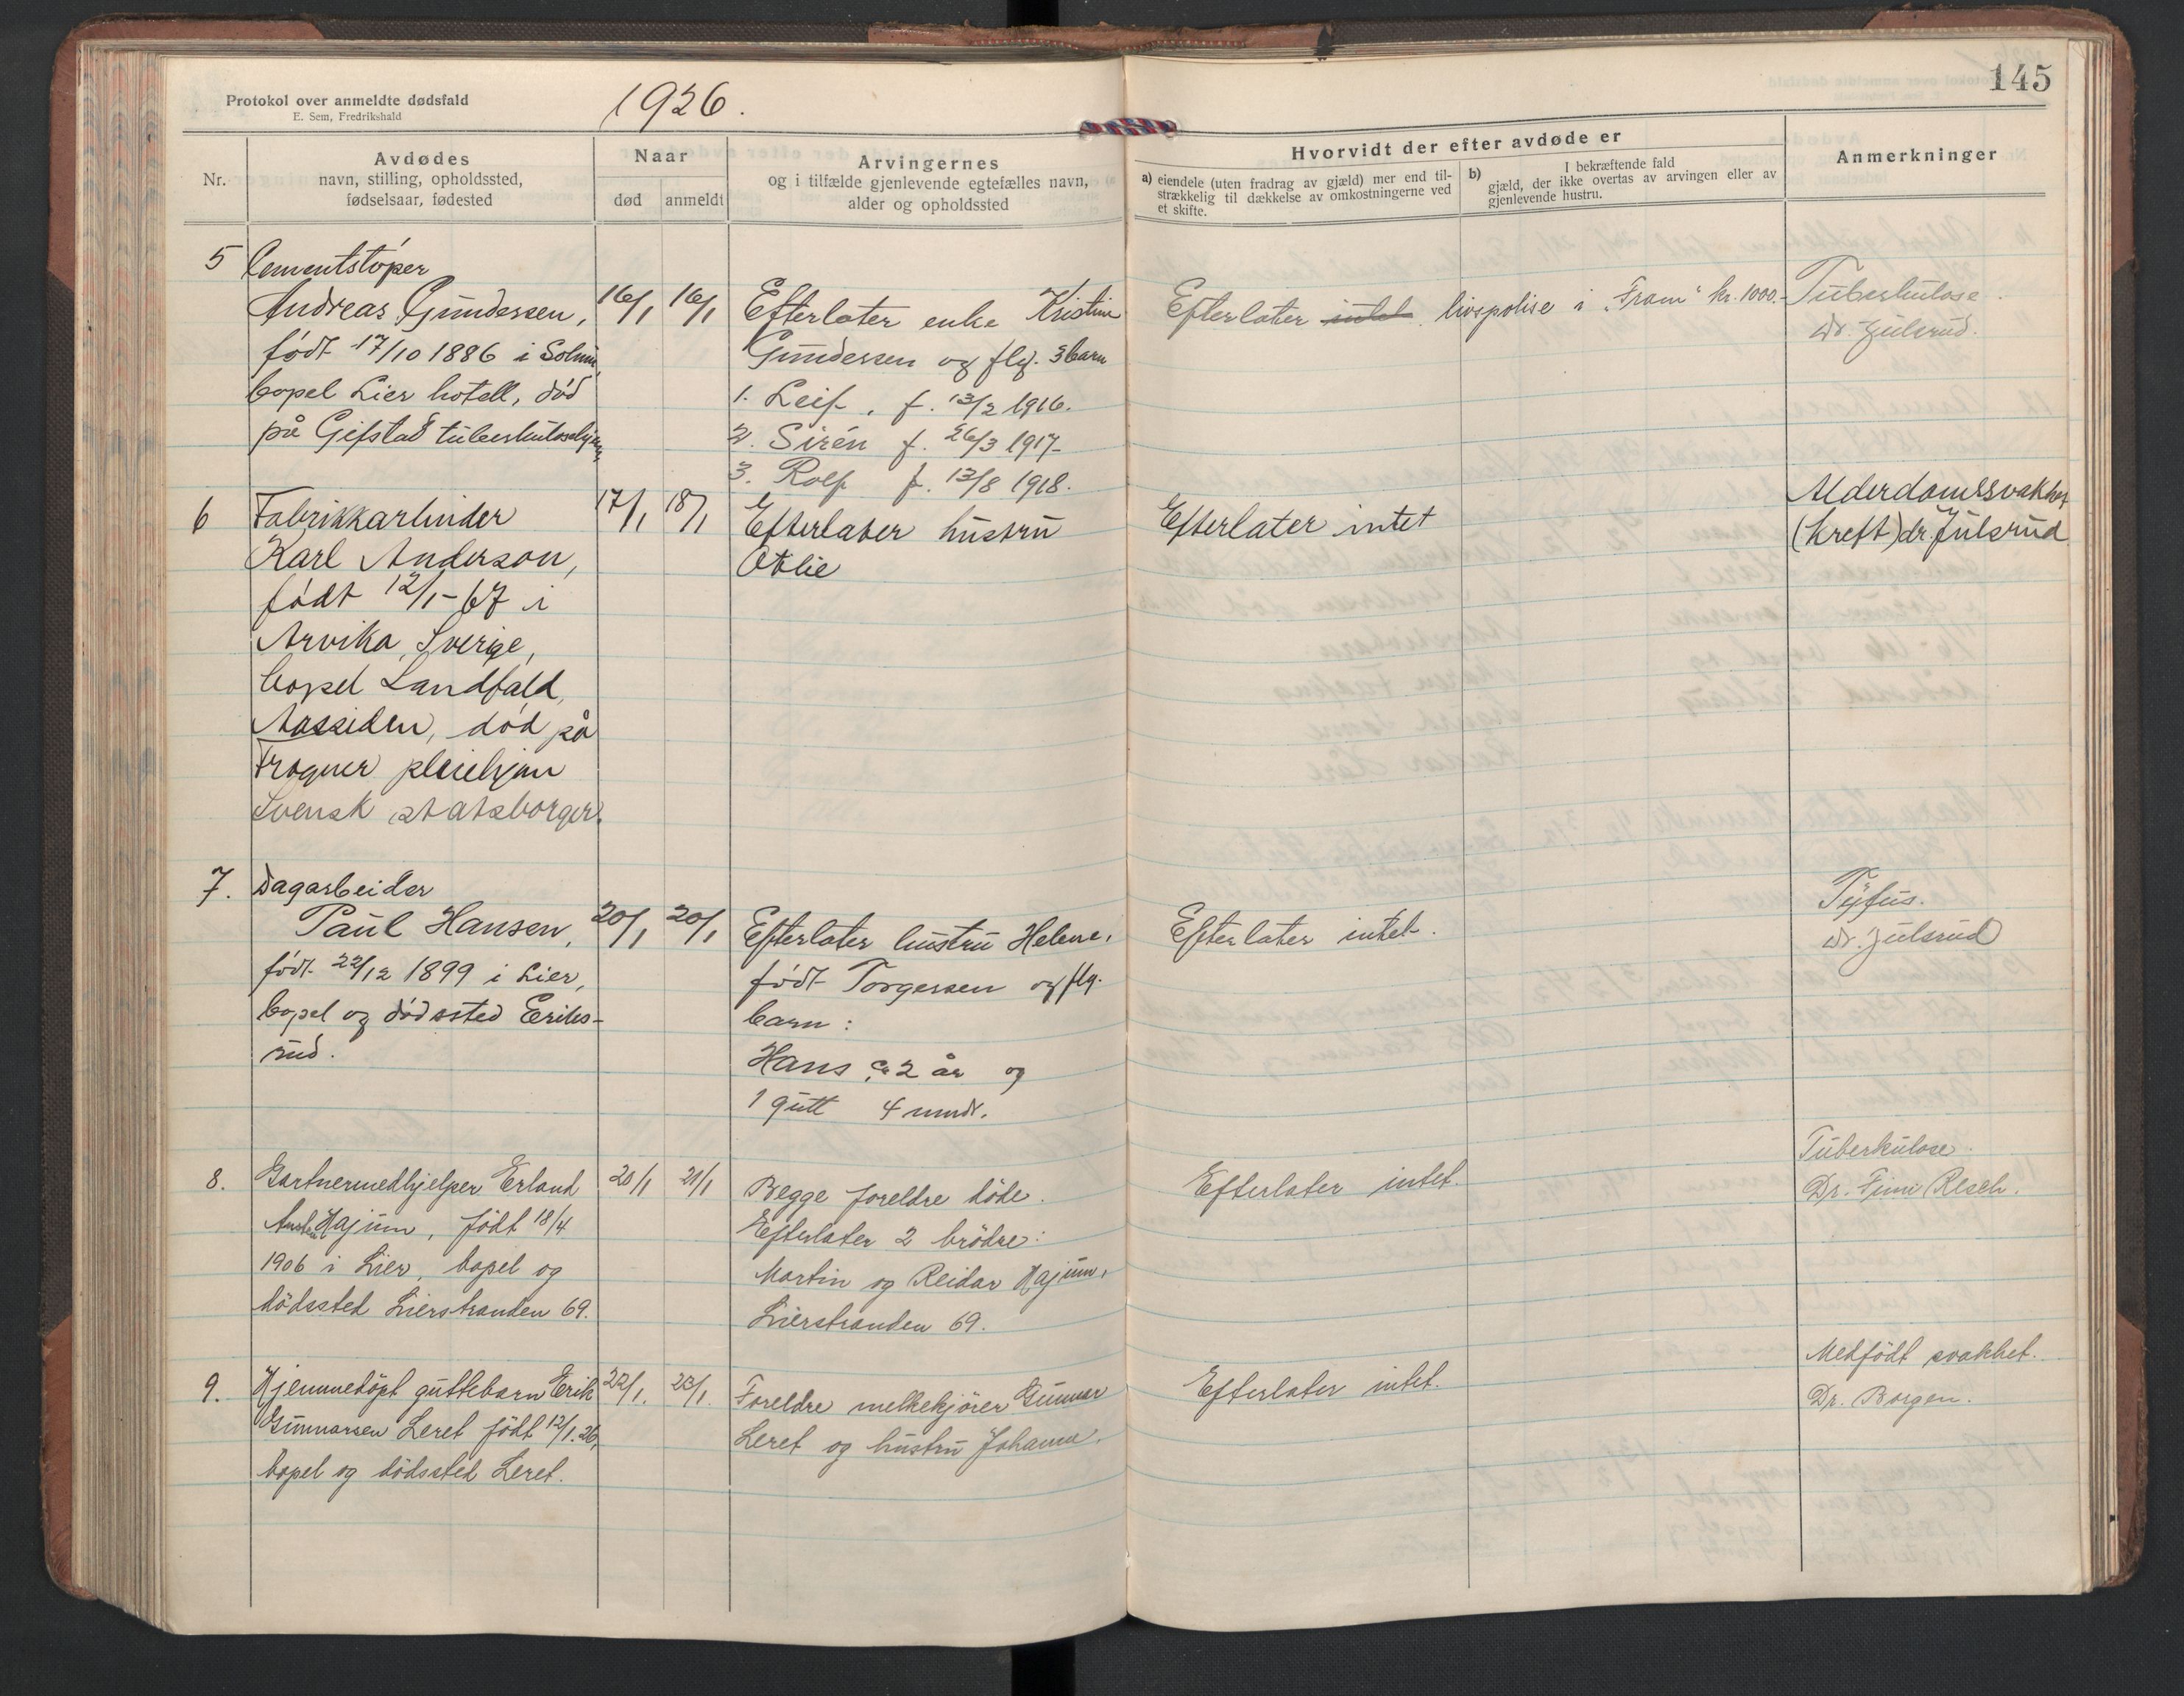 Protokol over anmeldte dødsfald
E. Sem, Fredrikshald
1926.
145
Nr.
Avdødes
navn, stilling, opholdssted,
fødselsaar, fødested
Naar
død
anmeldt
Arvingernes
og i tilfælde gjenlevende egtefælles navn,
alder og opholdssted
Hvorvidt der efter avdøde er
a) eiendele (uten fradrag av gjæld) mer end til-
strækkelig til dækkelse av omkostningerne ved
et skifte.
b) I bekræftende fald
gjæld, der ikke overtas av arvingen eller av
gjenlevende hustru.
Anmerkninger
5 Cementstøper
Andreas Gundersen,
født 17/10 1886 i Solum,
bopel Lier hotell, død
på Gifstad tuberkulosehjem,
16/1 16/1
Efterlater enke Kristine
Gundersen og flg. 3 barn
1. Leif, f. 13/2 1916.
2. Sirén f. 26/3 1917-
3. Rolf f. 13/8 1918.
Efterlater intet. livspolise i "Fram" kr. 1000.-
Tuberkulose.
Dr. Julsrud.
6 Fabrikkarbeider
Karl Anderson,
født 12/1-67 i
Arvika, Sverige,
bopel Landfald,
Aassiden, død på
Frogner pleiehjem
Svensk statsborger.
17/1 18/1
Efterlater hustru
Otilie
Efterlater intet
Alderdomssvakhet
(kreft) dr. Julsrud
7. Dagarbeider
Paul Hansen,
født 22/12 1899 i Lier,
bopel og dødssted Eriks-
rud.
20/1 20/1
Efterlater hustru Helene,
født Torgersen og flg.
barn:
Hans ca 2 år og
1 gutt 4 mndr.
Efterlater intet.
Tyfus.
Dr. Julsrud
8. Gartnermedhjelper Erland
Hajum, født 18/4
1906 i Lier, bopel og
dödssted Lierstranden 69.
20/1 21/1
Begge foreldre döde.
Efterlater 2 brödre:
Martin og Reidar Hajum,
Lierstranden 69.
Efterlater intet.
Tuberkulose.
Dr. Finn Resch.
9. Hjemmedöpt guttebarn Erik
Gunnarsen Leret født 12/1.26,
bopel og dödssted Leret.
22/1. 23/1.
Foreldre melkekjörer Gunnar
Leret og hustru Johanne.
Efterlater intet.
Medfödt svakhet.
Dr. Borgen.